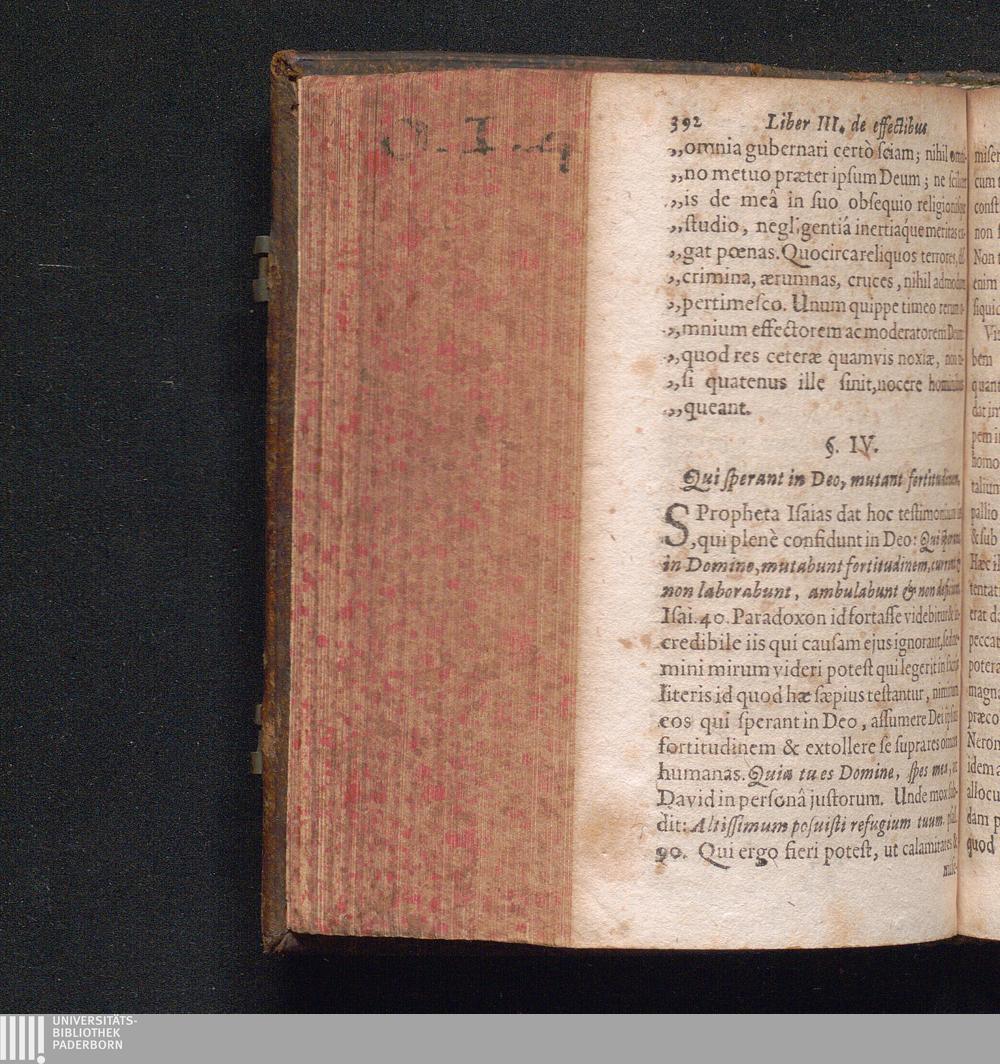 392 Liber III. de effectibus
„omnia gubernari certò ſciam; nihil
„no metuo præter ipſum Deum; ne
„is de meâ in ſuo obſequio
„ſtudio, negligentiá inertiaq́ue meritas
„gat pœnas. Quocirca reliquos terrores,
„crimina, ærumnas, cruces, nihil admodum
„pertimeſco. Unum quippe timeo rerum
„mnium effectorem ac moderatorem Deum
„quod res ceteræ quamvis noxiæ,
„ſi quatenus ille ſinit, nocere hominibus
„queant.
§. IV.
Qui ſperant in Deo, mutant fortitudinem.
S Propheta Iſaias dat hoc teſtimonium
,qui plenè confidunt in Deo: Qui
in Domino, mutabunt fortitudinem,
non laborabunt, ambulabunt & non
Iſai. 40. Paradoxon id fortaſſe videbitur &
credibile iis qui cauſam ejus ignorant,
mini mirum videri poteſt qui legerit in
literis id quod hæ ſæpius teſtantur, nimirum
eos qui ſperant in Deo, aſſumere Dei ipſius
fortitudinem & extollere ſe ſupra res omnes
humanas. Quia tu es Domine, ſpes mea,
David in perſonâ juſtorum. Unde mox ſub-
dit: Altiſſimum poſuiſti refugium tuum. pſal.
90. Qui ergo fieri poteſt, ut calamitates &
miſer
cum
conſt
non
Non
enim
ſiquid
bem
quant
dat
pem
homo
talium
pallio
& ſub
Hæc
tentat
erat
peccat
potera
magn
præco
Neron
idem
allocu
dam
quod
UNIVERSITÄTS-
BIBLIOTHEK
PADERBORN